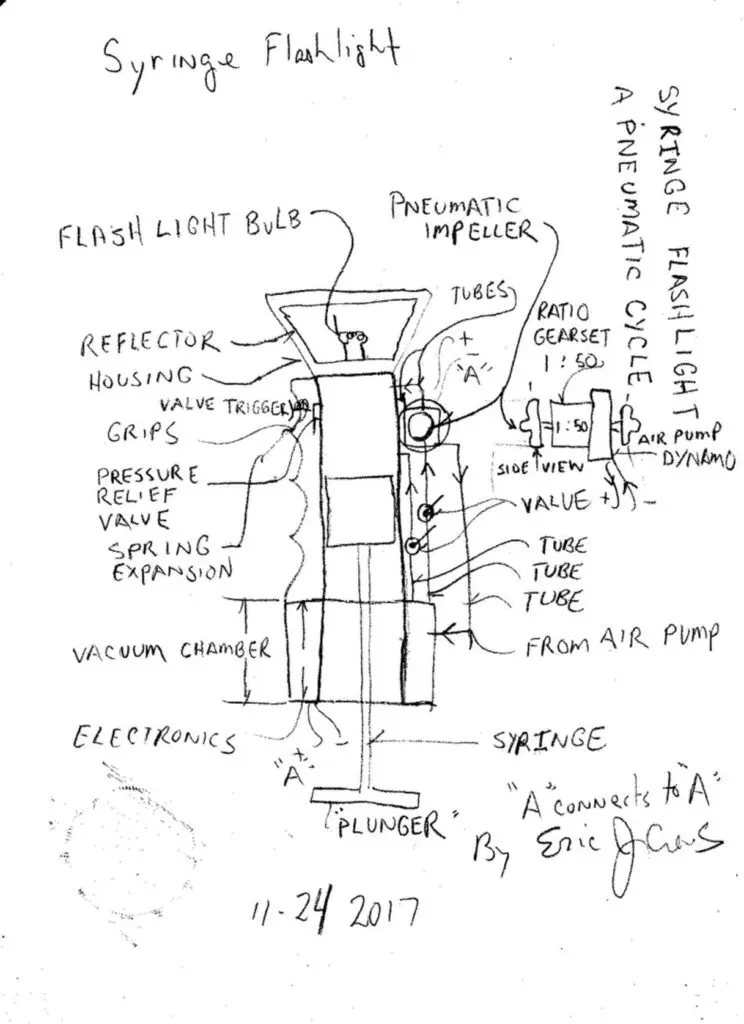 Syringe Flashlight
SYRINGE FLASHLIGHT
A PNEUMATIC CYCLE
FLASH LIGHT BULB
PNEUMATIC
IMPELLER
TUBES
REFLECTOR
HOUSING
VALVE TRIGGER
GRIPS
PRESSURE
RELIEF
VALVE
SPRING
EXPANSION
+
-
"A"
RATIO
GEARSET
1:50
1:50
SIDE VIEW
AIR PUMP
DYNAMO
+ -
VALUE
TUBE
TUBE
TUBE
FROM AIR PUMP
VACUUM CHAMBER
ELECTRONICS
+ -
"A"
SYRINGE
"PLUNGER"
"A" connects to "A"
By Eric J
11-24 2017